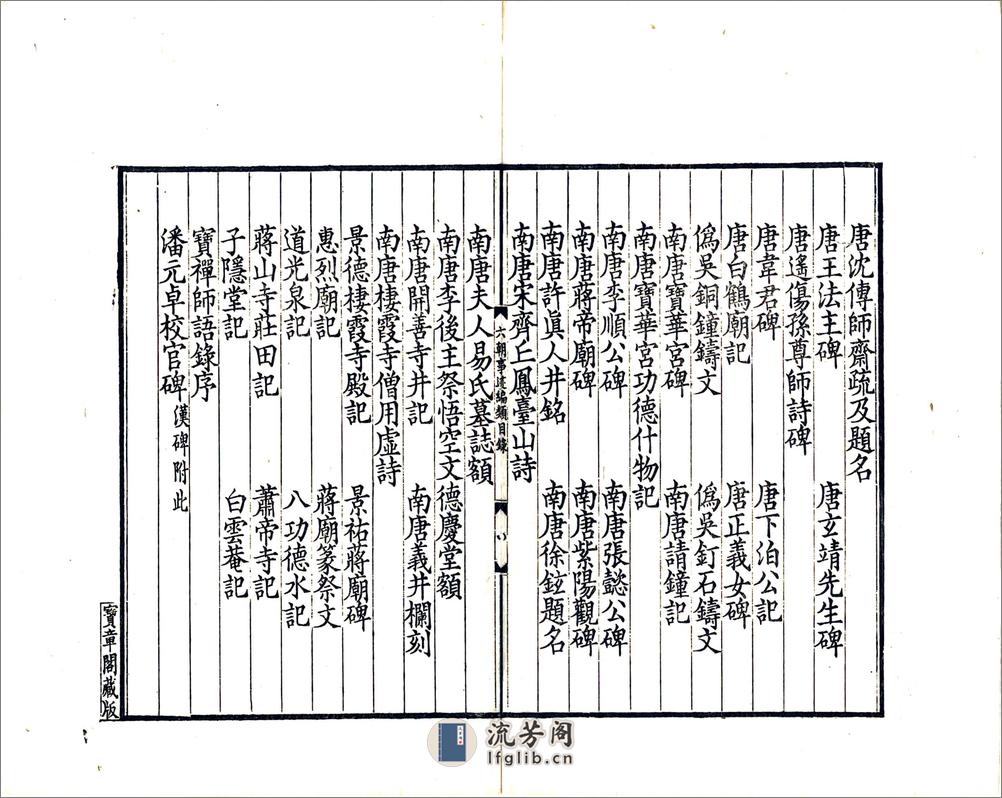 唐沈傳師齋疏及題名
唐王法主碑　唐玄靖先生碑
唐遙傷孫尊師詩碑
唐韋君碑　唐下泊公記
唐白鶴廟記　唐正義女碑
僞吳銅鐘鑄文　僞吳釘石鑄文
南唐寶華宮碑　南唐請鐘記
南唐寶華宮功德什物記
南唐李順公碑　南唐張懿公碑
南唐蔣帝廟碑　南唐紫陽觀碑
南唐許眞人井銘　南唐徐鉉題名
南唐宋齊丘鳳臺山詩
六朝事迹編類目錄
八
南唐夫人易氏墓誌額
南唐李後主祭悟空文　德慶堂額
南唐開善寺井記　南唐義井欄刻
南唐棲霞寺僧用虛詩
景德棲霞寺殿記　景祐蔣廟碑
惠烈廟記　蔣廟篆祭文
道光泉記　八功德水記
蔣山寺莊田記　蕭帝寺記
子隱堂記　白雲菴記
寶禪師語錄序
潘元卓校官碑漢碑附此
寶章閣藏版
流芳阁
lfglib.cn